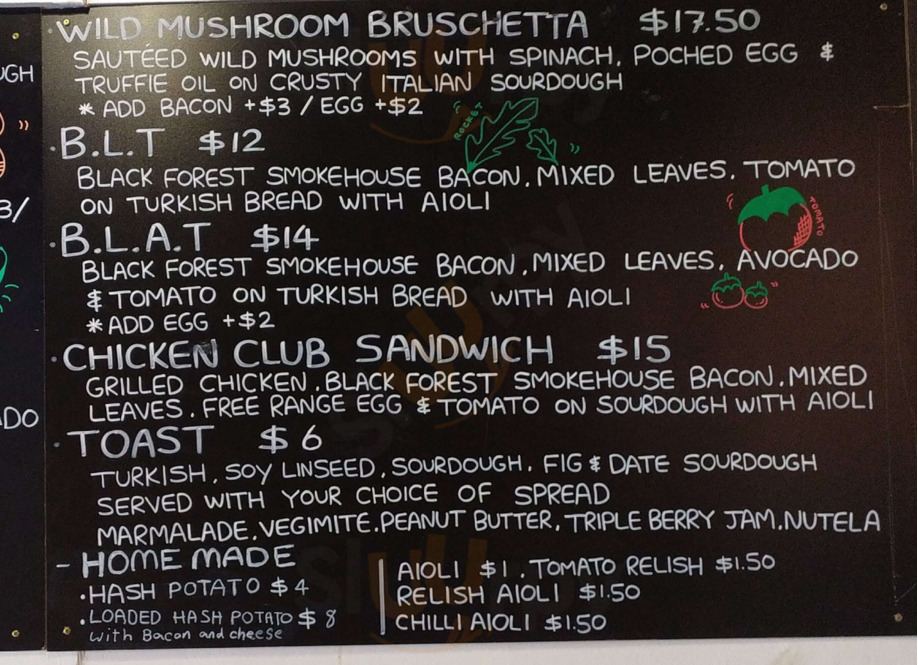 · WILD MUSHROOM BRUSCHETTA $17.50
SAUTÉED WILD MUSHROOMS WITH SPINACH, POCHED EGG &
TRUFFIE OIL ON CRUSTY ITALIAN SOURDOUGH
* ADD BACON +$3 / EGG +$2
ROCKET
· B.L.T $12
BLACK FOREST SMOKEHOUSE BACON, MIXED LEAVES, TOMATO
ON TURKISH BREAD WITH AIOLI
TOMATO
· B.L.A.T $14
BLACK FOREST SMOKEHOUSE BACON, MIXED LEAVES, AVOCADO
& TOMATO ON TURKISH BREAD WITH AIOLI
* ADD EGG +$2
· CHICKEN CLUB SANDWICH $15
GRILLED CHICKEN, BLACK FOREST SMOKEHOUSE BACON, MIXED
LEAVES, FREE RANGE EGG & TOMATO ON SOURDOUGH WITH AIOLI
· TOAST $6
TURKISH, SOY LINSEED, SOURDOUGH, FIG & DATE SOURDOUGH
SERVED WITH YOUR CHOICE OF SPREAD
MARMALADE, VEGIMITE, PEANUT BUTTER, TRIPLE BERRY JAM, NUTELA
- HOME MADE
· HASH POTATO $4
· LOADED HASH POTATO $8
with Bacon and cheese
AIOLI $1, TOMATO RELISH $1.50
RELISH AIOLI $1.50
CHILLI AIOLI $1.50
UGH
3/
ADO